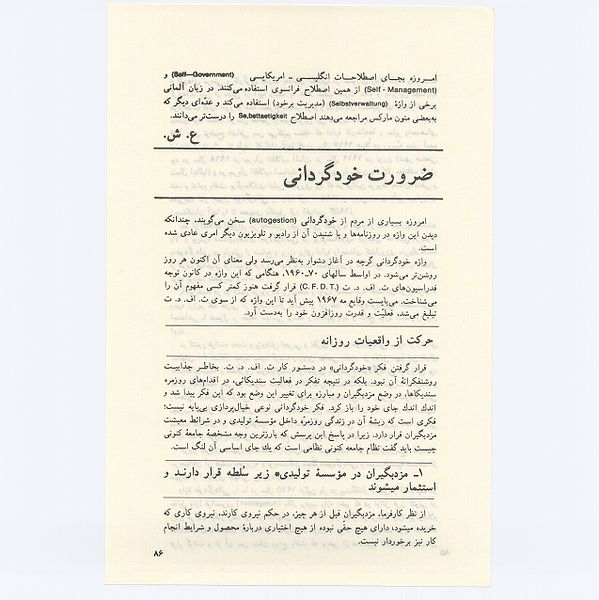 امروزه بجای اصطلاحات انگلیسی ـ امریکایی (Self—Government) و
(Self - Management) از همین اصطلاح فرانسوی استفاده می‌کنند. در زبان آلمانی
برخی از واژهٔ (Selbstverwaltung) (مدیریت برخود) استفاده می‌کند و عدّه‌ای دیگر که
به‌بعضی متون مارکس مراجعه می‌دهند اصطلاح Se‚battaetigkeit را درست‌تر می‌دانند.
ع. ش.
ضرورت خودگردانی
امروزه بسیاری از مردم از خودگردانی (autogestion) سخن می‌گویند، چندانکه
دیدن این واژه در روزنامه‌ها و یا شنیدن آن از رادیو و تلویزیون دیگر امری عادی شده
است.
واژه خودگردانی گرچه در آغاز دشوار به‌نظر می‌رسد ولی معنای آن اکنون هر روز
روشن‌تر می‌شود. در اواسط سالهای ۷۰-۱۹۶۰، هنگامی که این واژه در کانون توجه
فدراسیون‌های ث. اف. د. ت (C. F. D. T.) قرار گرفت هنوز کمتر کسی مفهوم آن را
می‌شناخت. می‌بایست وقایع مه ۱۹۶۷ پیش آید تا این واژه که از سوی ث. اف. د. ت
تبلیغ می‌شد، فعالیّت و قدرت روزافزون خود را به‌دست آرد.
حرکت از واقعیات روزانه
قرار گرفتن فکر «خودگردانی» در دستور کار ث. اف. د. ت. بخاطر جذابیت
روشنفکرانهٔ آن نبود. بلکه در نتیجه تفکر در فعالیت سندیکائی، در اقدام‌های روزمره
سندیکاها، در وضع مزدبگیران و مبارزه برای تغییر این وضع بود که این فکر پیدا شد و
اندك اندك جای خود را باز کرد. فکر خودگردانی نوعی خیال‌پردازی بی‌پایه نیست؛
فکری است که ریشهٔ آن در زندگی روزمرّه داخل مؤسسهٔ تولیدی و در شرائط معیشت
مزدبگیران قرار دارد. زیرا در پاسخ این پرسش که بارزترین وجه مشخصهٔ جامعهٔ کنونی
چیست باید گفت نظام جامعه کنونی نظامی است که یك جای اساسی آن لنگ است.
۱ـ مزدبگیران در مؤسسهٔ تولیدی* زیر سُلطه قرار دارند و
استثمار میشوند
از نظر کارفرما، مزدبگیران قبل از هر چیز، در حکم نیروی کارند، نیروی کاری که
خریده میشود، دارای هیچ حقّی نبوده از هیچ اختیاری دربارهٔ محصول و شرایط انجام
کار نیز برخوردار نیست.
۸۶